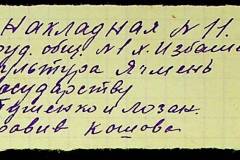 Накладная N 11.
труд. общ. N 1 х. Избаше
культура Ячмень
государству
Тущенко и Лозан.
равив Кошова